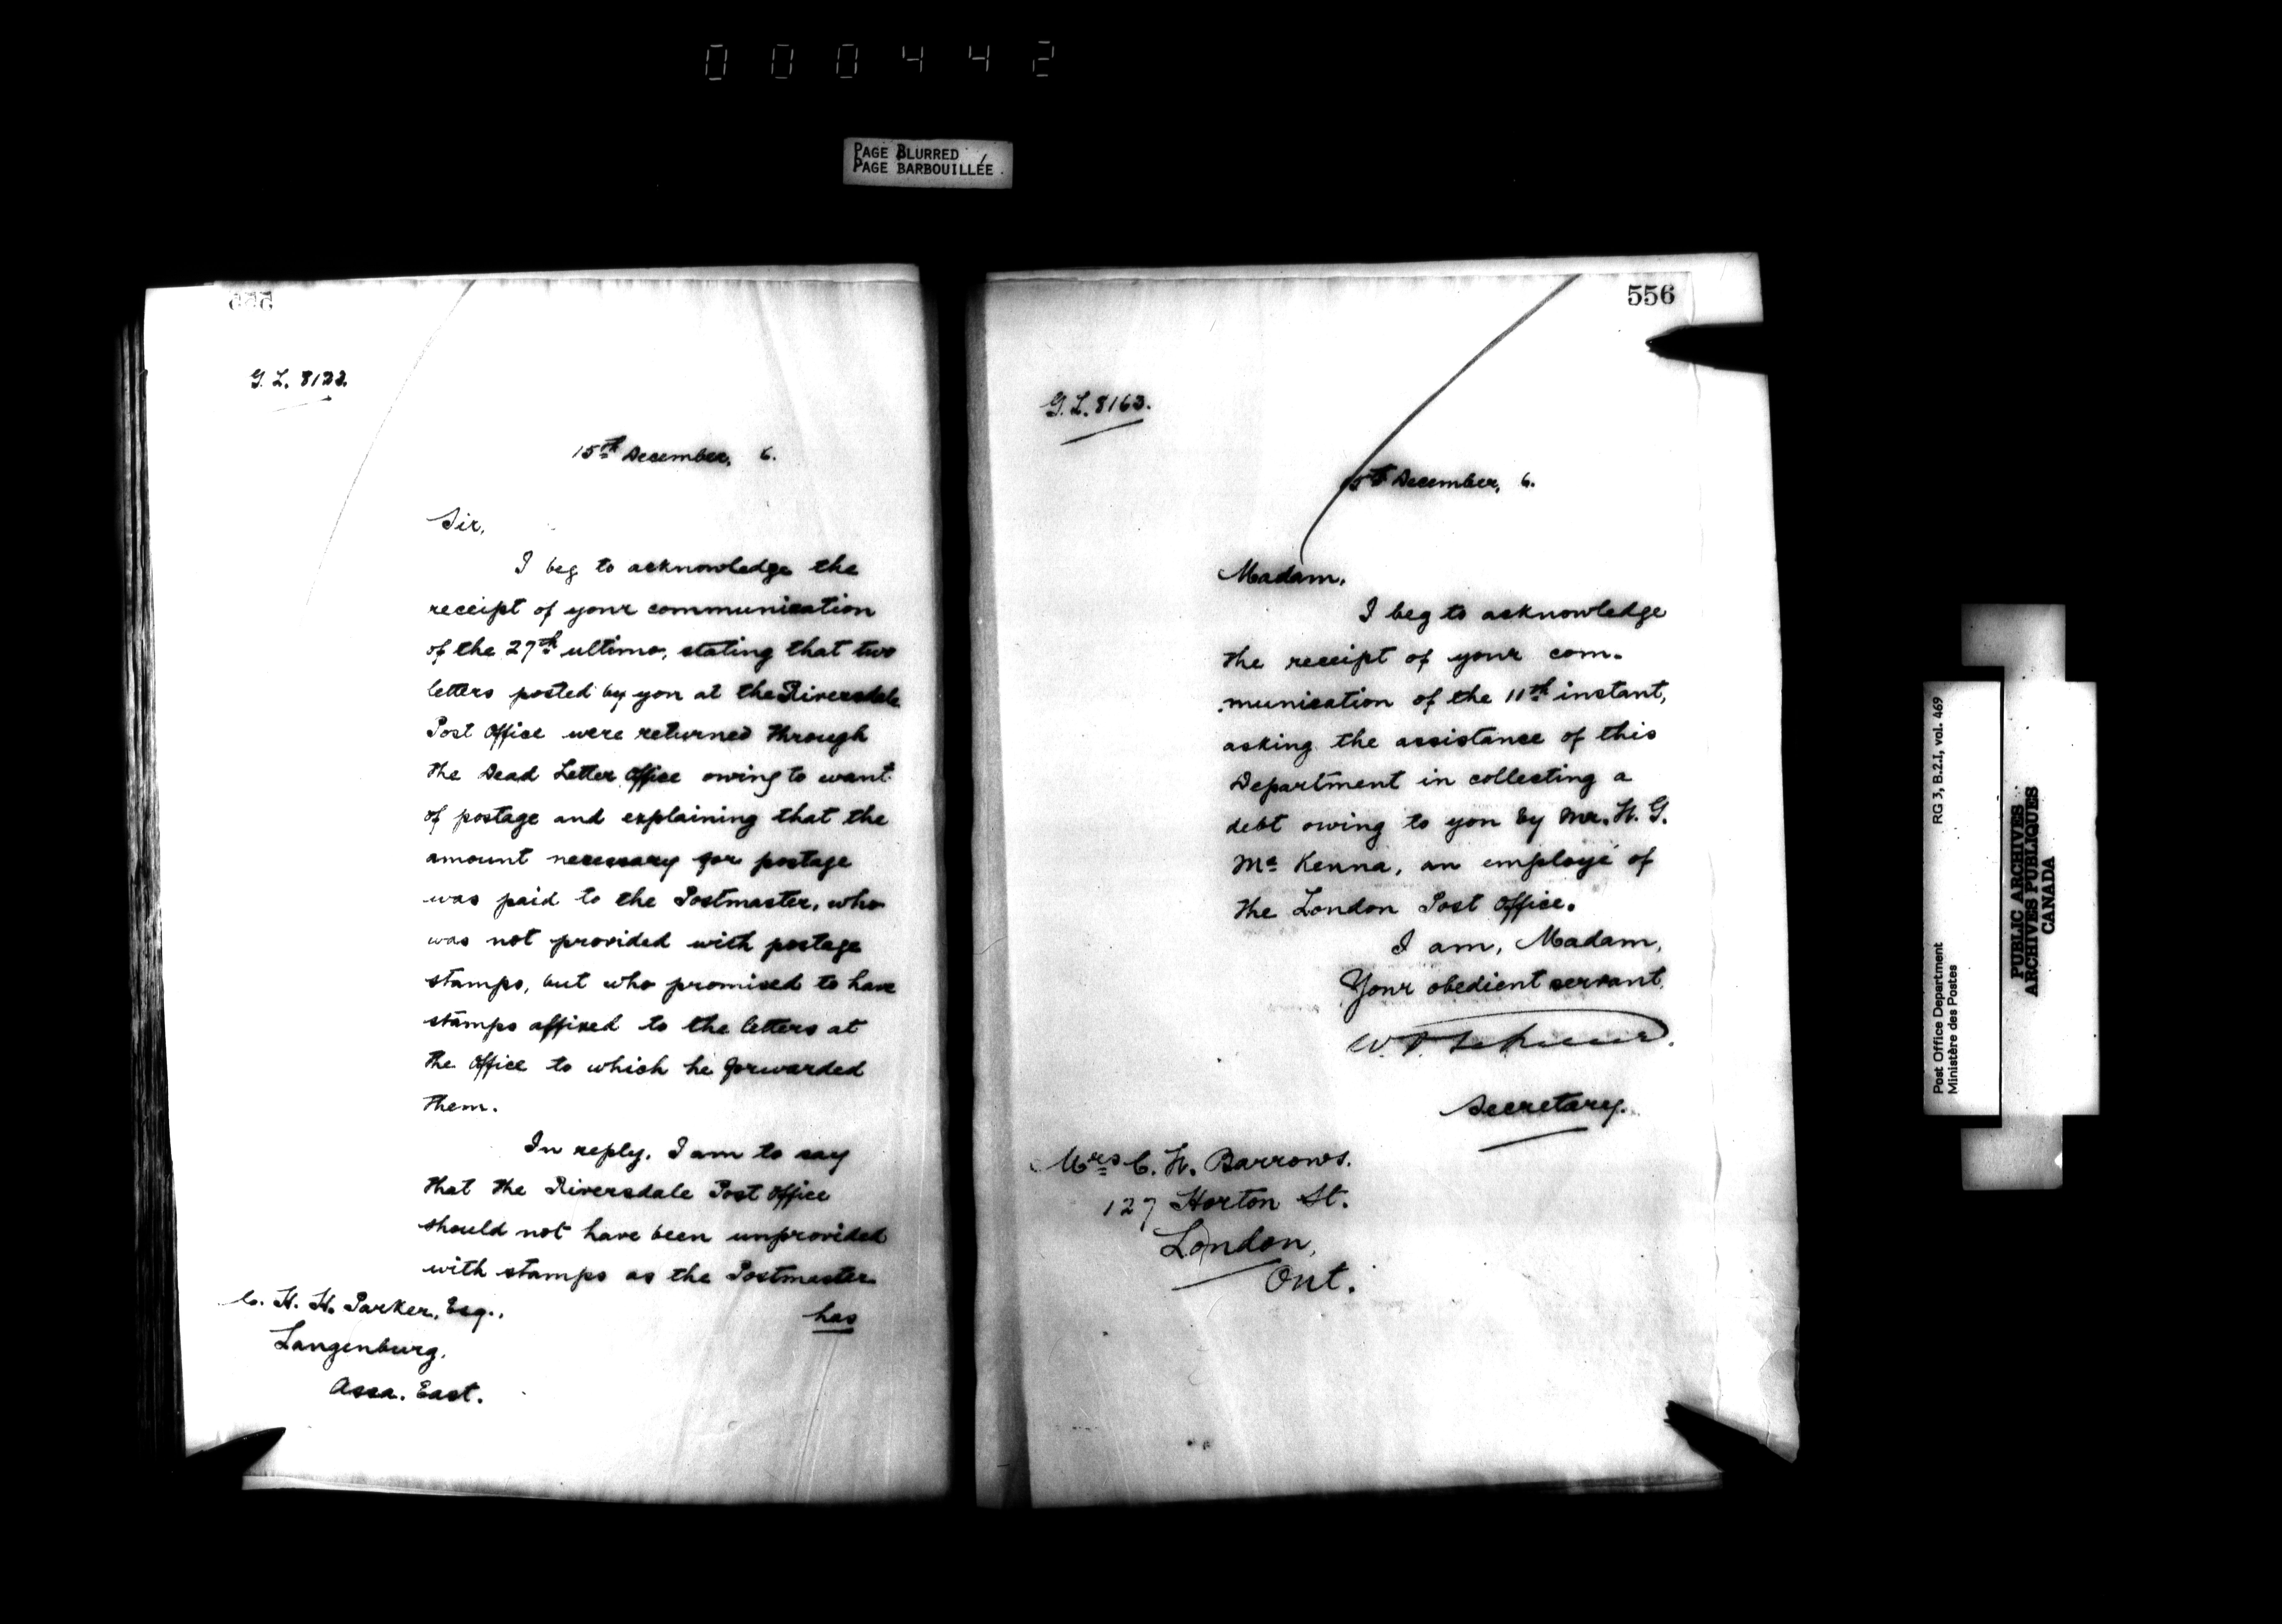 000442
PAGE BLURRED
PAGE BARBOUILLÉE
555
G. L. 8122.
15th December, 6.
Sir,
I beg to acknowledge the
receipt of your communication
of the 27th ultimo, stating that two
letters posted by you at the Riversdale
Post Office were returned through
the Dead Letter Office owing to want
of postage and explaining that the
amount necessary for postage
was paid to the Postmaster, who
was not provided with postage
stamps, but who promised to have
stamps affixed to the letters at
the Office to which he forwarded
them.
In reply, I am to say
that the Riversdale Post Office
should not have been unprovided
with stamps as the Postmaster
has
C. H. H. Parker, Esq.,
Langenburg,
Assa. East.
556
G. L. 8163.
15th December, 6.
Madam,
I beg to acknowledge
the receipt of your com-
munication of the 11th instant,
asking the assistance of this
Department in collecting a
debt owing to you by Mr. H. G.
Mc Kenna, an employé of
the London Post Office.
I am, Madam,
Your obedient servant,
Secretary.
Mrs C. H. Barrows.
127 Horton St.
London,
Ont.
Post Office Department
Ministère des Postes
RG 3, B.2.I, vol. 469
PUBLIC ARCHIVES
ARCHIVES PUBLIQUES
CANADA